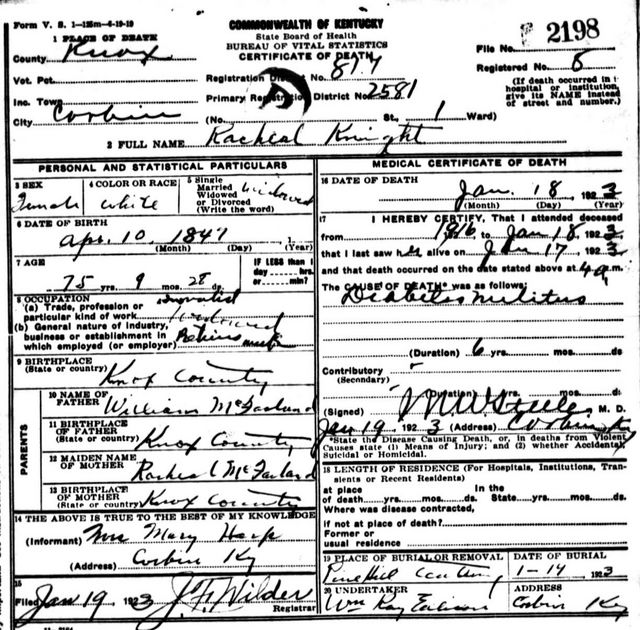 Form V. S. 1—125m—4-19-19
COMMONWEALTH OF KENTUCKY
State Board of Health
BUREAU OF VITAL STATISTICS
CERTIFICATE OF DEATH
File No. 2198
Registered No. 5
(If death occurred in hospital or institution, give its NAME instead of street and number.)
1 PLACE OF DEATH
County Knox
Vot. Pct.
Inc. Town
City Corbin
Registration District No. 817
Primary Registration District No. 2581
(No. St., 1 Ward)
2 FULL NAME Racheal Knight
PERSONAL AND STATISTICAL PARTICULARS
3 SEX Female
4 COLOR OR RACE White
5 Single Married Widowed or Divorced (Write the word) Widowed
6 DATE OF BIRTH
Apr. 10. 1847
(Month) (Day) (Year)
7 AGE
75 yrs. 9 mos. 28 ds.
IF LESS than 1 day ----- hrs. or ----- min?
8 OCCUPATION
(a) Trade, profession or particular kind of work
(b) General nature of industry, business or establishment in which employed (or employer)
9 BIRTHPLACE
(State or country) Knox County
PARENTS
10 NAME OF FATHER William McFarland
11 BIRTHPLACE OF FATHER
(State or country) Knox County
12 MAIDEN NAME OF MOTHER Racheal McFarland
13 BIRTHPLACE OF MOTHER
(State or country) Knox County
14 THE ABOVE IS TRUE TO THE BEST OF MY KNOWLEDGE
(Informant) Mrs Mary
Corbin Ky
15
Filed Jan 19, 1923 J F Wilder
Registrar
MEDICAL CERTIFICATE OF DEATH
16 DATE OF DEATH
Jan. 18, 1923
(Month) (Day) (Year)
17 I HEREBY CERTIFY, That I attended deceased
from 1916 to Jan 18, 1923
that I last saw her alive on Jan 17, 1923
and that death occurred on the date stated above at 4 a m.
The CAUSE OF DEATH* was as follows:
Diabetes militus
(Duration) 6 yrs. mos. ds.
Contributory
(Secondary)
(Duration) yrs. mos. ds.
(Signed) M W Steele M. D.
Jan 19, 1923 (Address) Corbin Ky
*State the Disease Causing Death, or, in deaths from Violent
Causes state (1) Means of Injury; and (2) whether Accidental,
Suicidal or Homicidal.
18 LENGTH OF RESIDENCE (For Hospitals, Institutions, Transients or Recent Residents)
at place of death yrs. mos. ds. In the State yrs. mos. ds.
Where was disease contracted,
if not at place of death?
Former or usual residence
19 PLACE OF BURIAL OR REMOVAL
DATE OF BURIAL
Pine Hill
1-14 1923
20 UNDERTAKER
ADDRESS
Corbin Ky